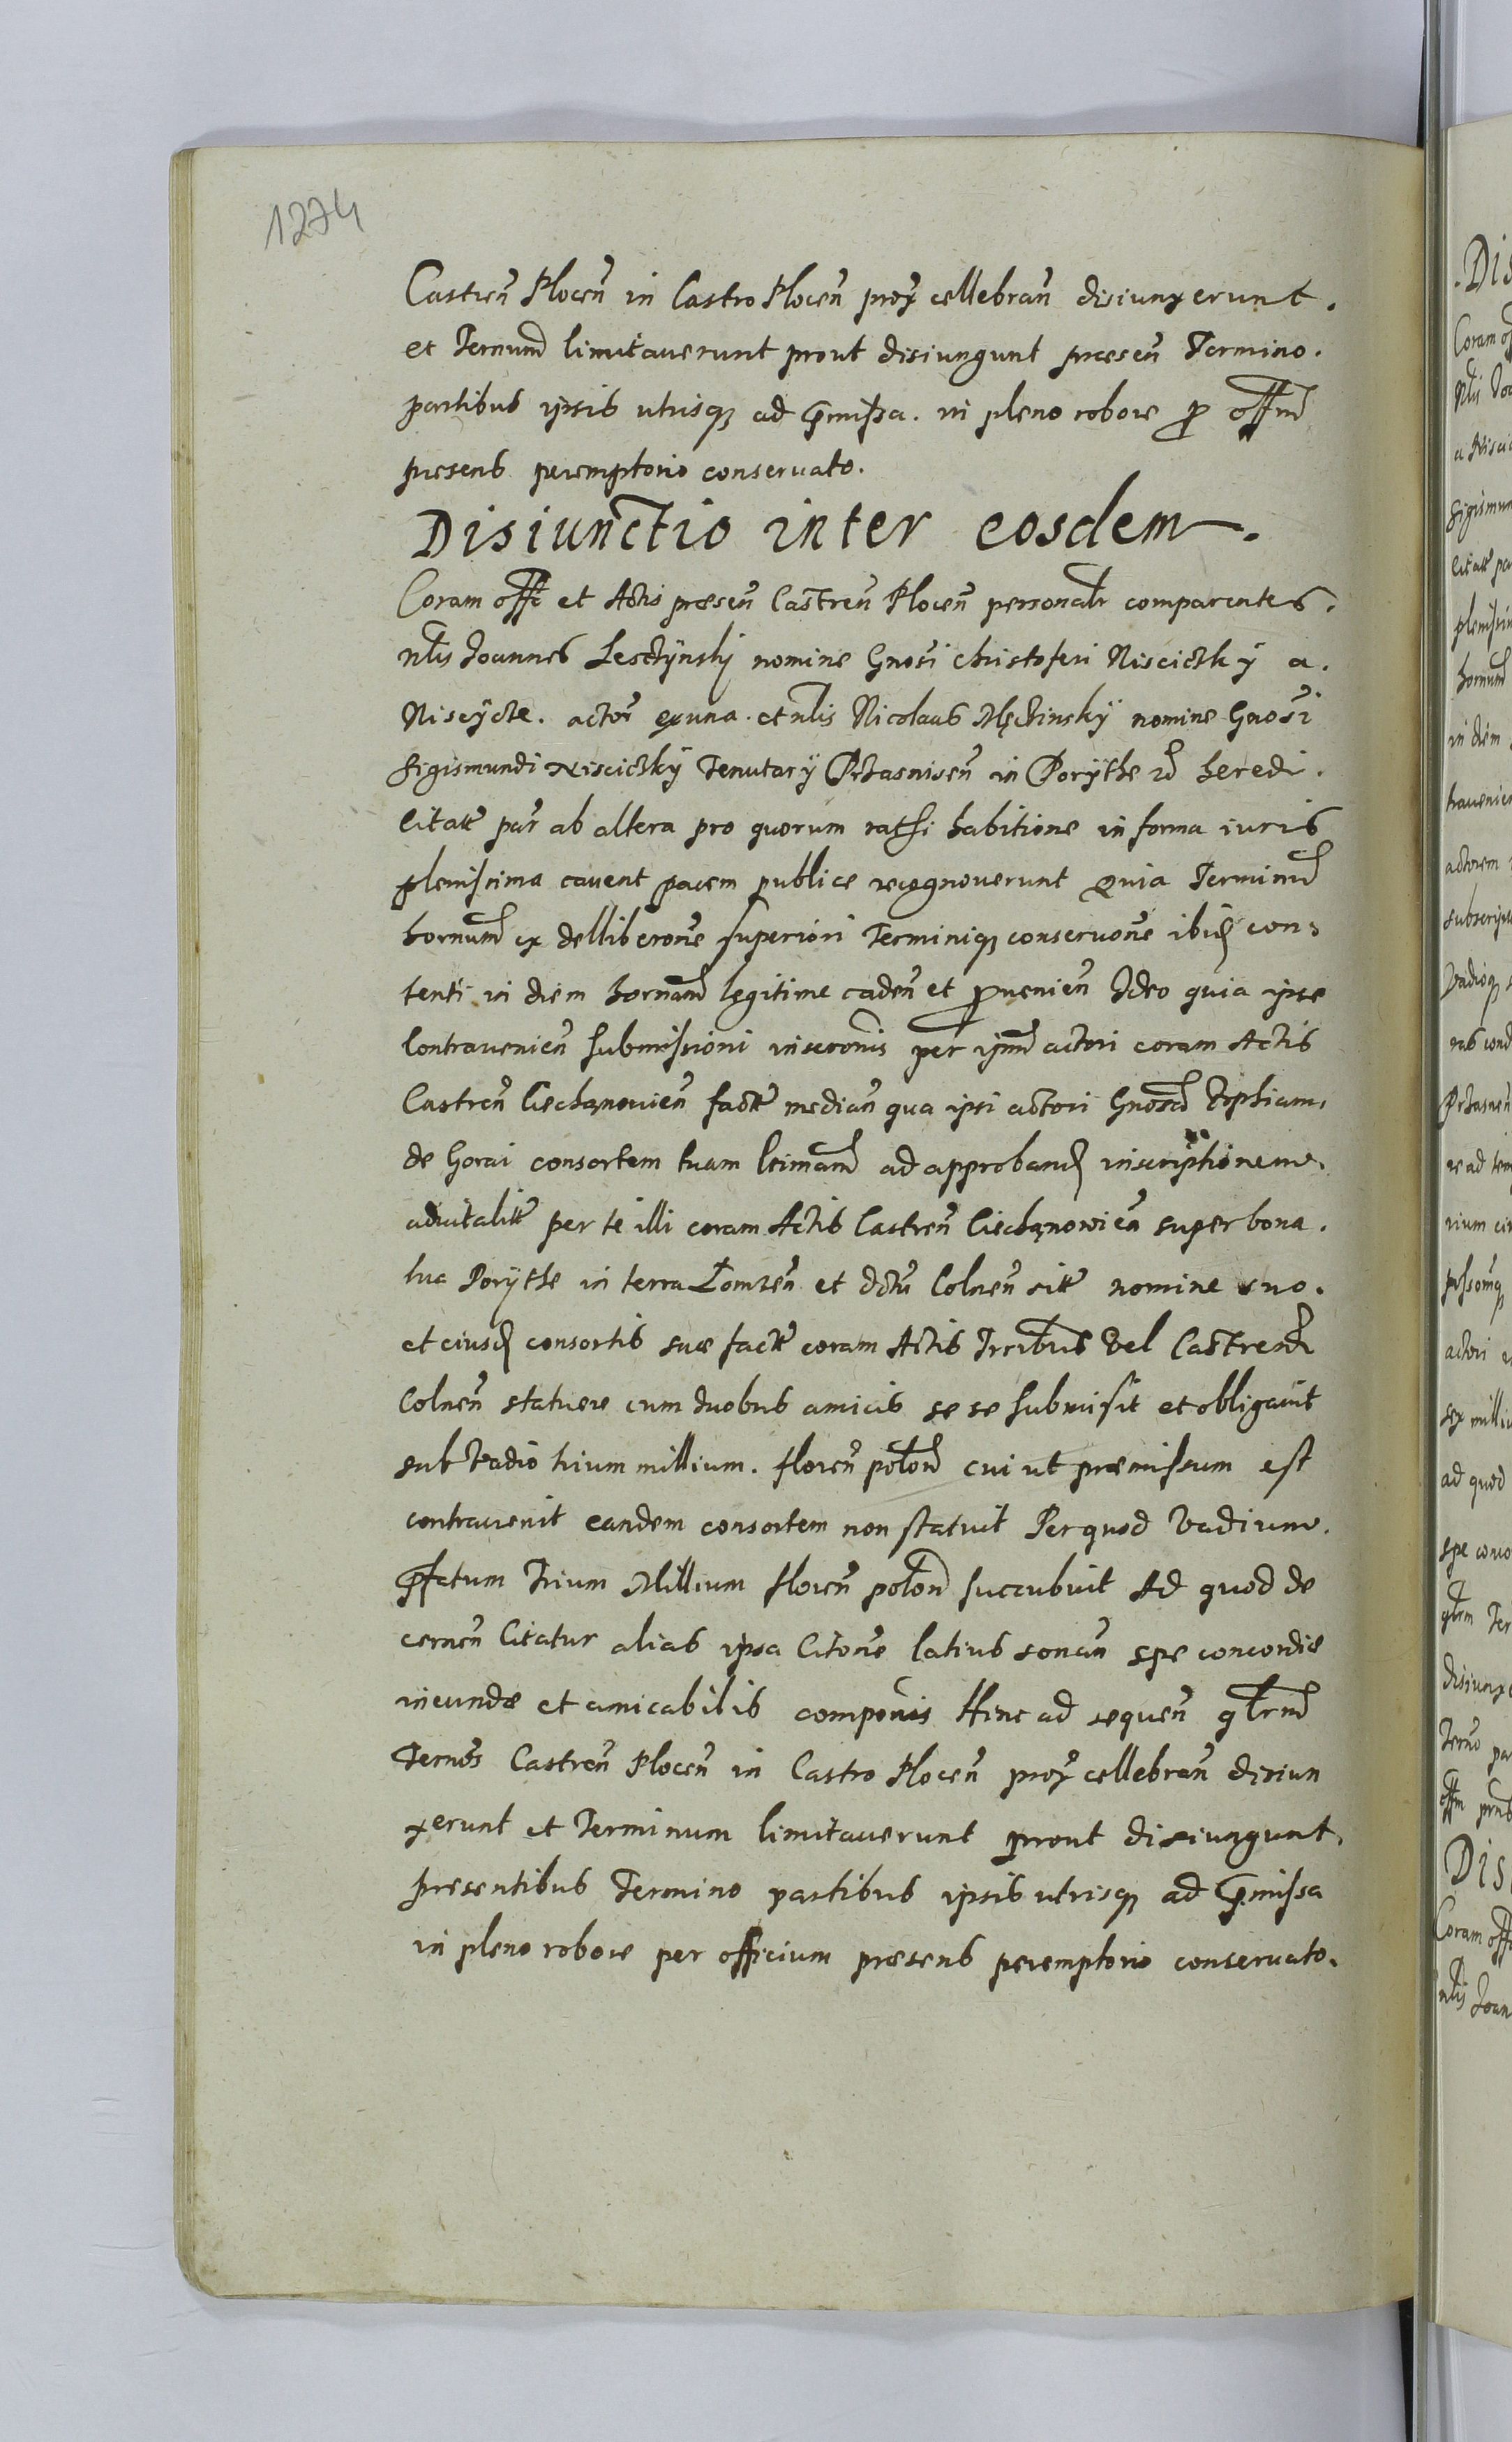 1274
Castren̄ Plocen̄ in Castro Plocen̄ prox̄ cellebran̄ disiunxerunt.
et Termın̄ limitauerunt prout disiungunt præsen̄ Termino.
partibus ipsis utrisq; ad p̄missa. in pleno robore p offm̄
præsens peremptorio conseruato.
Disiunctio inter eosdem.
Coram offo et Actis præsen̄ Castren̄ Plocen̄ personalr̄ comparentes.
nl̄is Joannes Lesczÿnskj nomine Gnosi christoferi Nisciczkÿ a.
Niscÿcze. actor̄ ex una. et nl̄is Nicolaus Męczinskÿ nomine Gnosi
Sigismundi Nisciczkÿ Tenutarÿ Przasnisen̄ in Porÿthe heredi.
Citatæ par̄ ab altera pro quorum rathi habitione in forma iuris
plenissima cauent pacem publice recognouerunt Quia Terminū
hornum̄ ex delliberone superiori Terminiq; conseruone ibid con:
tenti in diem hornam̄ legitime caden̄ et p̄uenien̄ Ideo quia ipse
Contrauenien̄ submissioni inscronis per ipsum̄ actori coram Actis
Castren̄ Ciechanouien̄ factæ median̄ qua ipsi actori Gnosam̄ Zophiam.
de Gorai consortem tuam ltimam̄ ad approband inscriptionem.
aduitalit per te illi coram Actis Castren̄ Ciechanowien̄ super bona.
tua Porÿthe in terra Łomzen̄ et dctu Colnen̄ sitæ nomine suo.
et eiusd consortis suæ factæ coram Actis Trribus Vel Castrenbꝰ
Colnen̄ statuere cum duobus amicis se se submisit et obligauit
sub Vadio trium millium. floren̄ polon̄ cui ut præmissum est
contrauenit eandem consortem non statuit Per quod Vadium.
p̄fatum Trium Millium floren̄ polon̄ succubuit Ad quod de
cernen̄ Citatur alias ipsa Citone latius sonan̄ spe concordiæ
ineundæ et amicabilis componis Hinc ad sequen̄ qrlm̄
Ternos Castren̄ Plocen̄ in Castro Plocen̄ prox̄ cellebran̄ disiun
xerunt et Terminum limitauerunt prout disiungunt.
præsentibus Termino partibus ipsis utrisq; ad p̄missa
in pleno robore per officium præsens peremptorio conseruato.